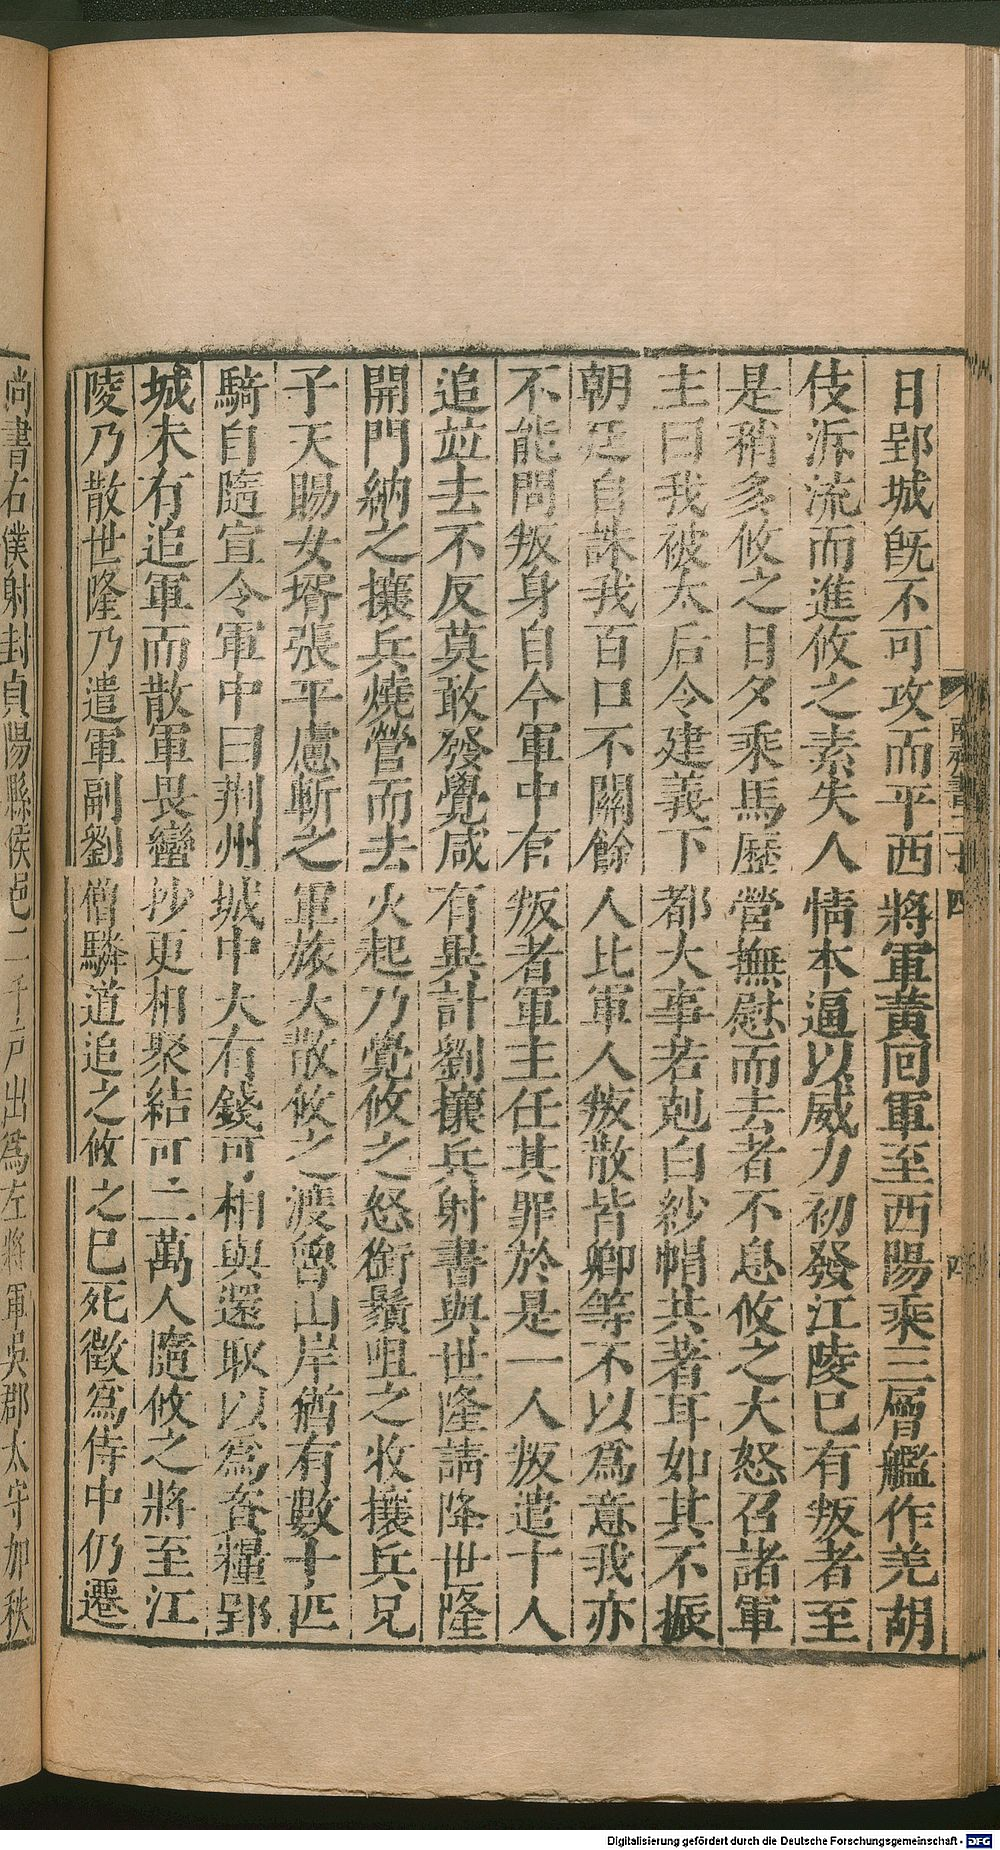 日郢城旣不可攻而平西將軍黃回軍至西陽乘三層艦作羌胡
伎泝流而進攸之素失人情本逼以威力初發江陵巳有叛者至
是稍多攸之日夕乘馬歷營撫慰而去者不息攸之大怒召諸軍
主曰我被太后令建義下都大事若剋白紗帽共著耳如其不振
朝廷自誅我百口不關餘人比軍人叛散皆卿等不以爲意我亦
不能問叛身自今軍中有叛者軍主任其罪於是一人叛遣十人
追並去不反莫敢發覺咸有異計劉攘兵射書與世隆請降世隆
開門納之攘兵燒營而去火起乃覺攸之怒銜鬚咀之收攘兵兄
子天賜女壻張平慮斬之軍旅大散攸之渡魯山岸猶有數十匹
騎自隨宣令軍中曰荆州城中大有錢可相與還取以爲資糧郢
城未有追軍而散軍畏蠻抄更相聚結可二萬人隨攸之將至江
陵乃散世隆乃遣軍副劉僧驎道追之攸之巳死徵爲侍中仍遷
尚書右僕射封貞陽縣侯邑二千戶出爲左將軍吳郡太守加秩
南齊書二十四
四
Digitalisierung gefördert durch die Deutsche Forschungsgemeinschaft - DFG